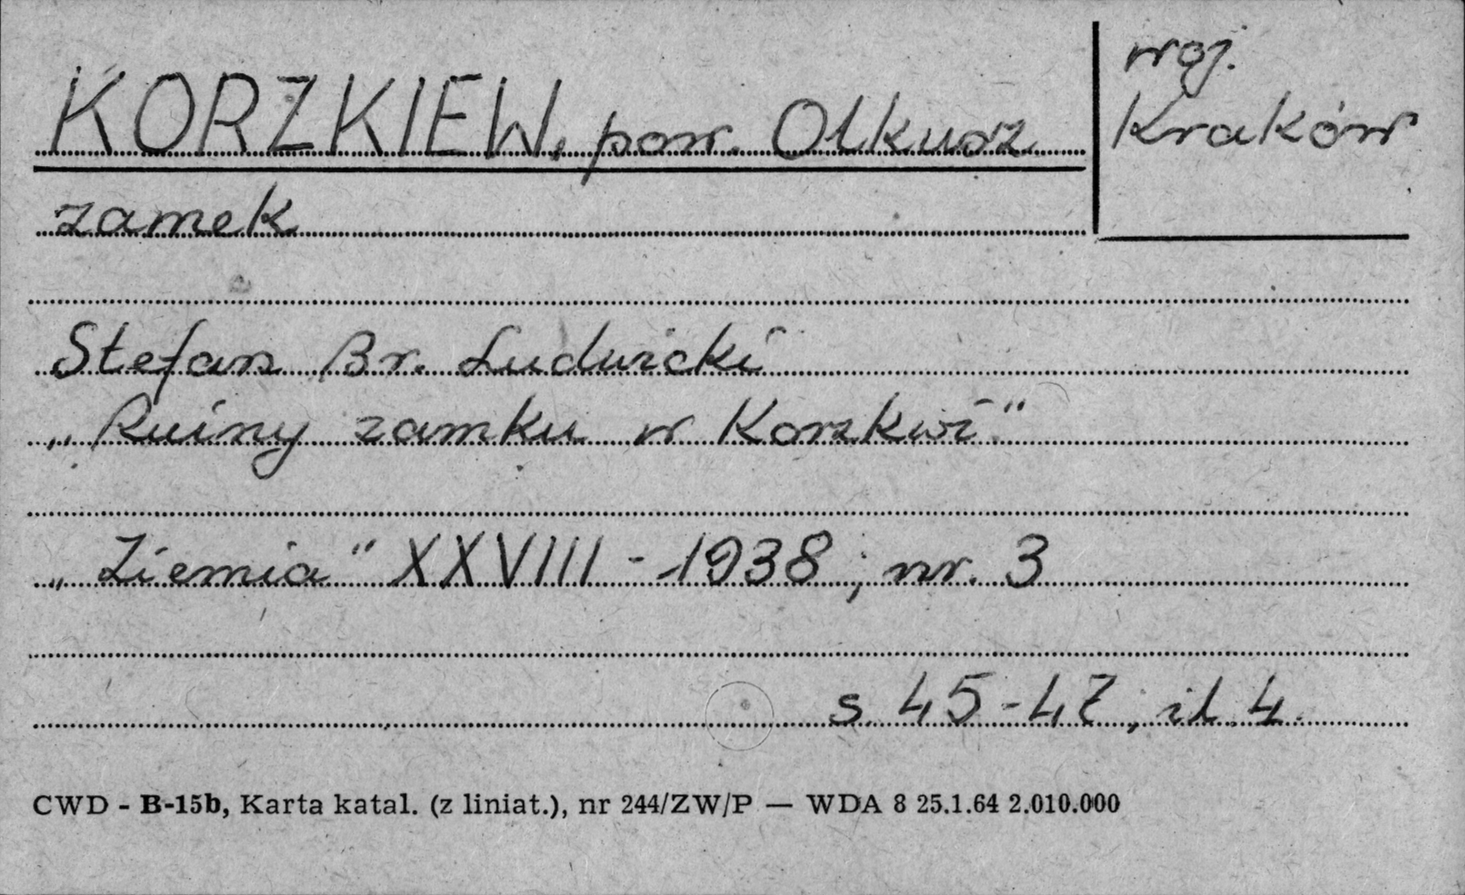 KORZKIEW, pow. Olkusz
woj.
Kraków
zamek
Stefan Br. Ludwicki
„Ruiny zamku w Korzkwi"
„Ziemia" XXVIII - 1938; nr. 3
s. 45-47; il. 4.
CWD - B-15b, Karta katal. (z liniat.), nr 244/ZW/P — WDA 8 25.1.64 2.010.000